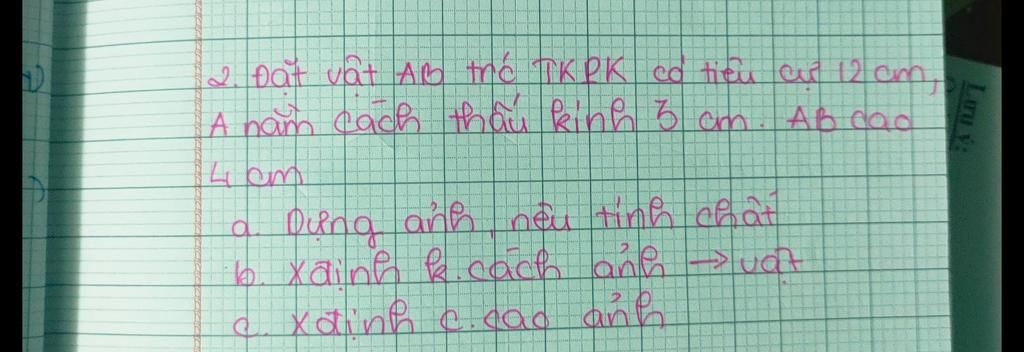 2. Đặt vật AB trc TKPK có tiêu cự 12 cm,
A nằm cách thấu kính 3 cm. AB cao
4 cm
a. Dựng ảnh, nêu tính chất
b. xđịnh k.cách ảnh → vật
c. xđịnh c.cao ảnh
Lưu ý: